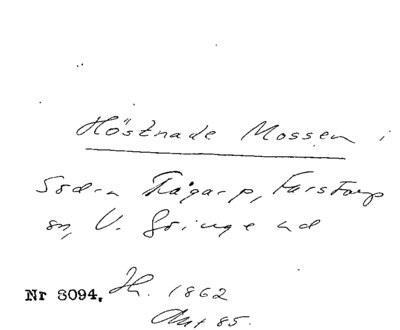 Höstnade Mossen i
Södra Rågarp, Farstorp
sn, V. Göinge hd
Nr 8094. H. 1862
Ant 85.